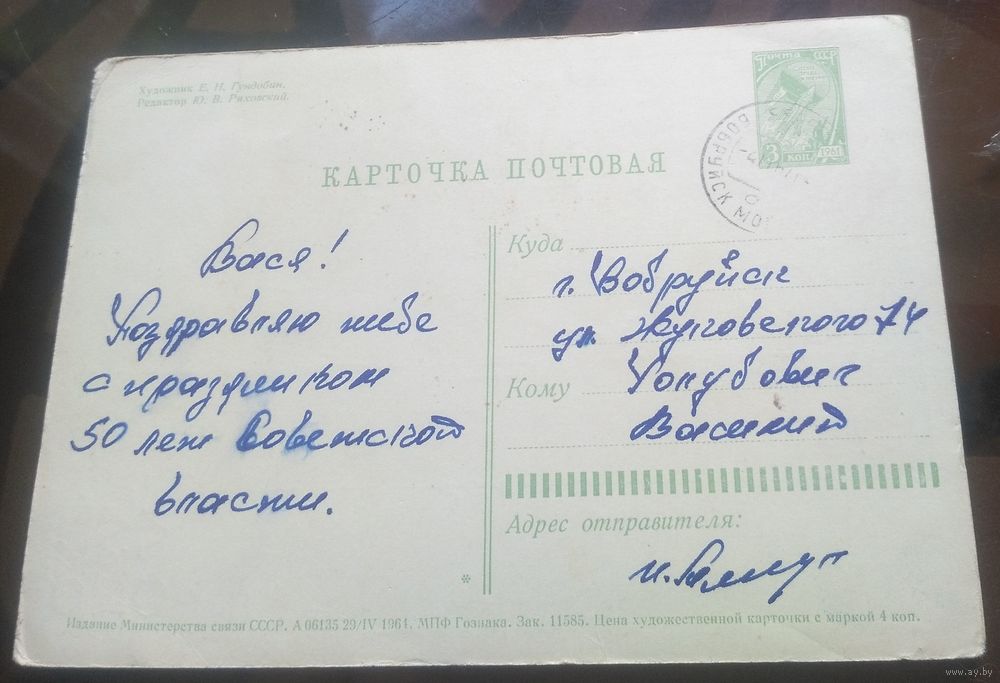 Художник Е. Н. Гундобин.
Редактор Ю. В. Ряховский.
Почта СССР
3 коп 1961
БОБРУЙСК МО
КАРТОЧКА ПОЧТОВАЯ
Вася!
Поздравляю тебе
с праздником
50 лет Советской
власти.
Куда
г. Бобруйск
ул. 74
Кому
Голубович
Василий
Адрес отправителя:
*
Издание Министерства связи СССР. А 06135 29/IV 1964. МПФ Гознака. Зак. 11585. Цена художественной карточки с маркой 4 коп.
www.ay.by